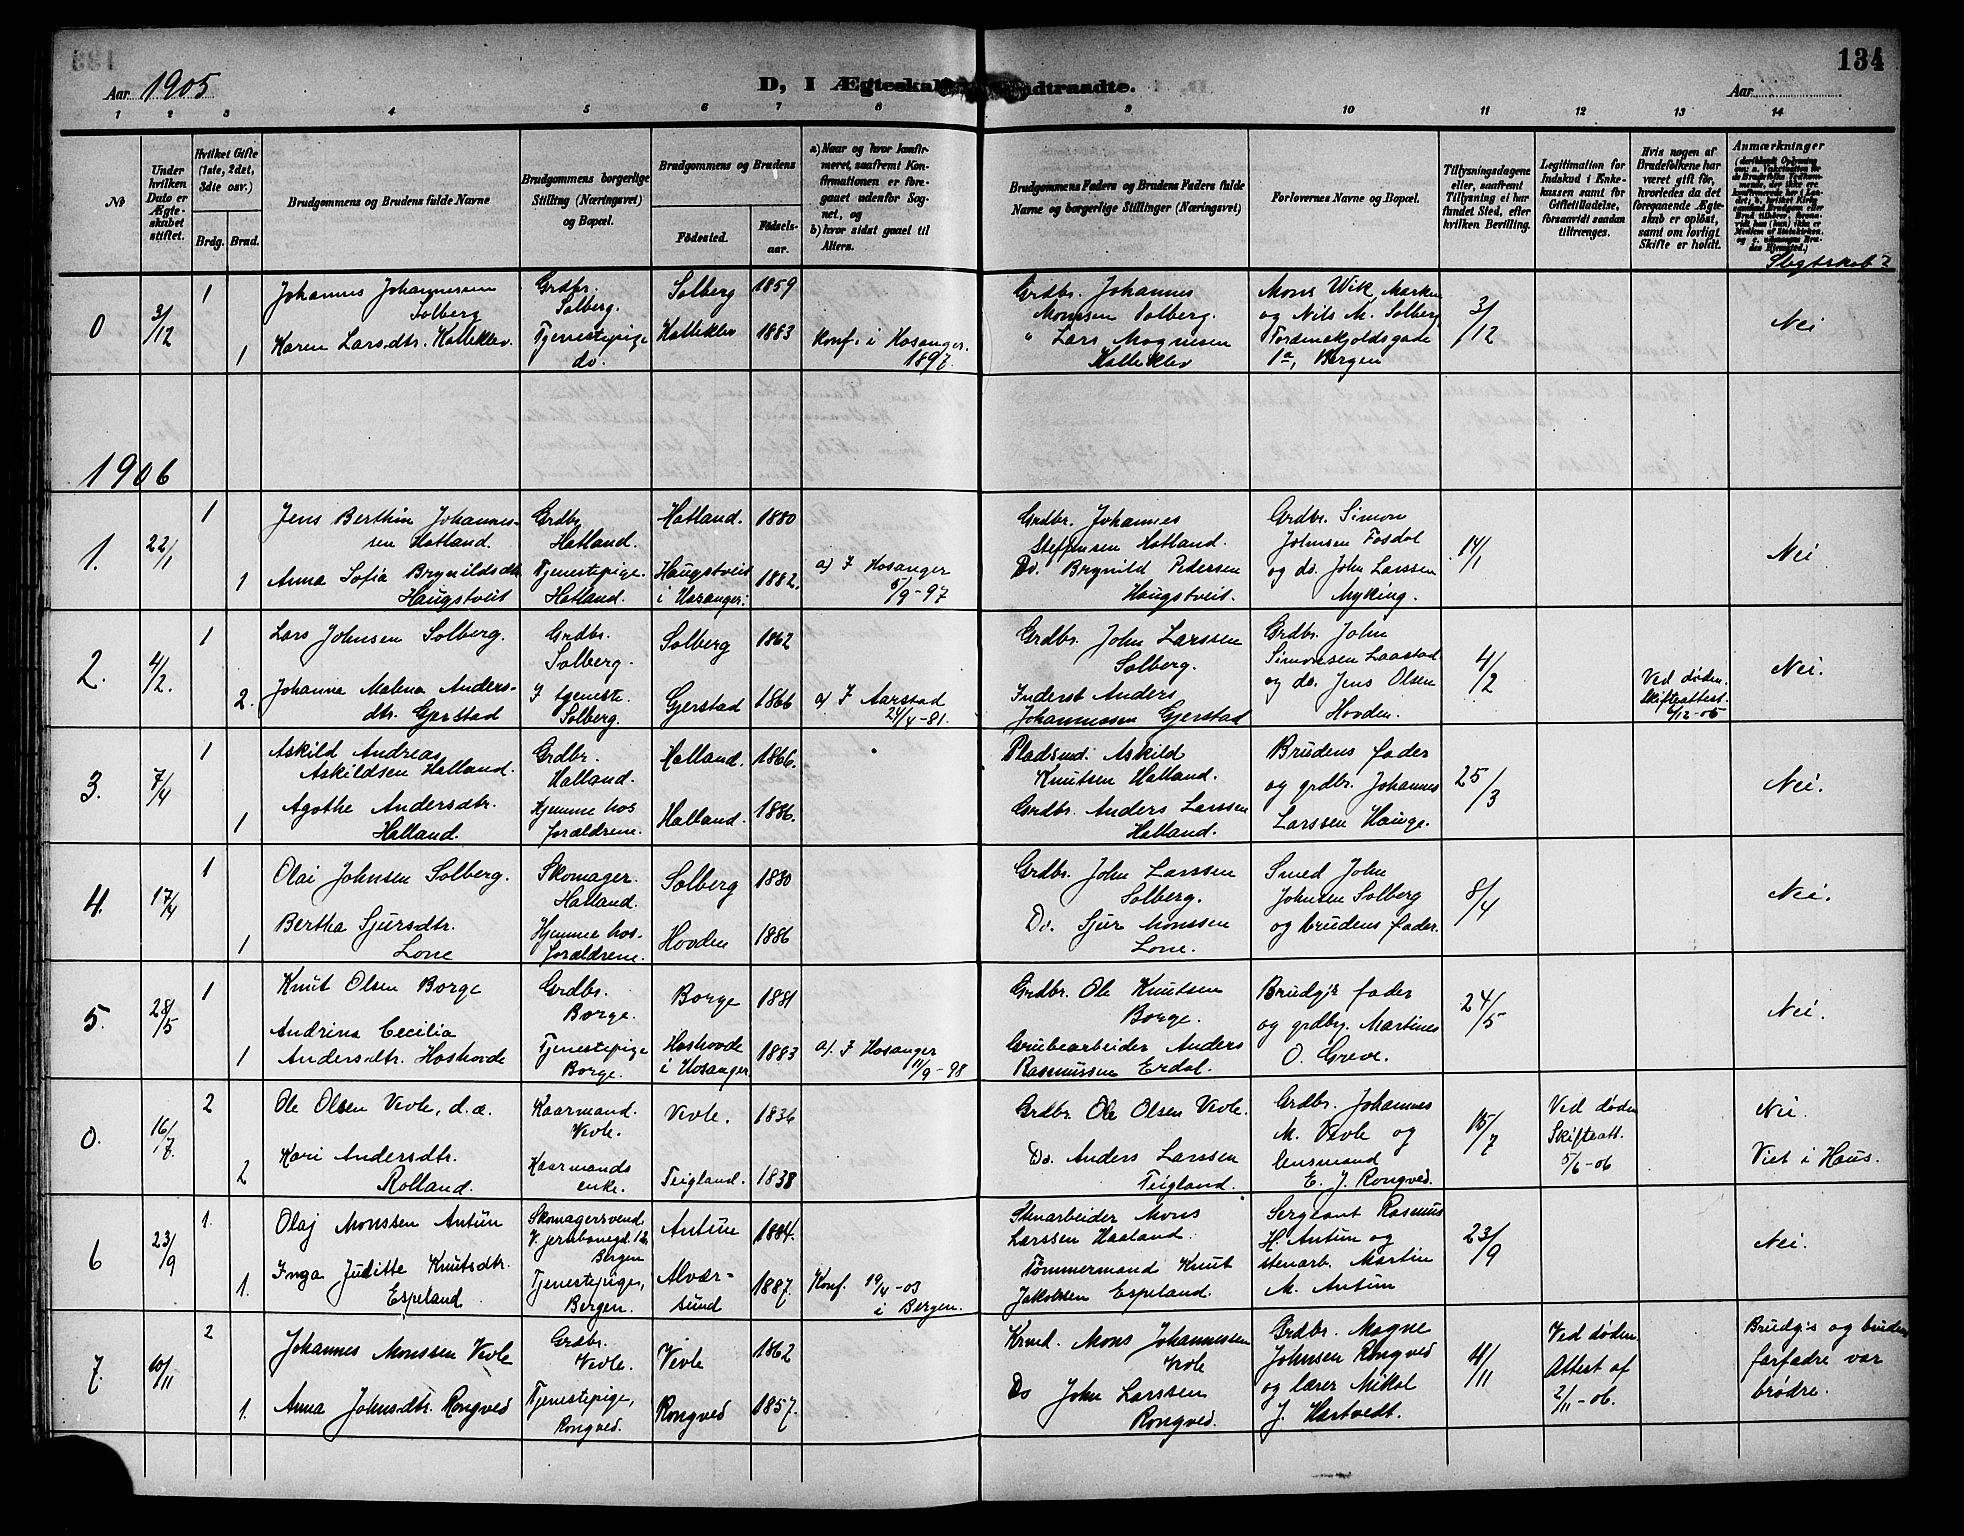 134
Aar 1905
D, I Ægteskab Indtraadte.
Aar
1 2 3 4 5 6 7 8 9 10 11 12 13 14
No
Under hvilken Dato er Ægteskabet stiftet.
Hvilket Gifte (1ste, 2det, 3die osv.)
Brdg. Brud.
Brudgommens og Brudens fulde Navne
Brudgommens borgerlige Stilling (Næringsvei) og Bopæl.
Brudgommens og Brudens
Fødested. Fødselsaar.
a) Naar og hvor konfirmeret, saafremt Konfirmationen er foregaaet udenfor Sognet, og
b) hvor sidst gaaet til Alters.
Brudgommens Faders og Brudens Faders fulde Navne og borgerlige Stillinger (Næringsvei)
Forlovernes Navne og Bopæl.
Tillysningsdagene eller, saafremt Tillysning ei har fundet Sted, efter hvilken Bevilling.
Legitimation for Indskud i Enkekassen samt for Giftetilladelse, forsaavidt saadan tiltrænges.
Hvis nogen af Brudefolkene har været gift før, hvorledes da det foregaaende Ægteskab er opløst, samt om lovligt Skifte er holdt.
Anmærkninger
Slegtskab?
0 3/12 1 Johannes Johannessen Solberg Grdbr. Solberg. Solberg 1859 Grdbr. Johannes Monssen Solberg. Mons Wik Marken og Nils M. Solberg 3/12 Nei
1 Karen Larsdtr. Kalleklev. Tjenestepige do. Kalleklev 1883 Konf. i Hosanger. 1897. " Lars Magnesen Kalleklev Tordenskjoldsgade 1a, Bergen
1906
1. 22/1 1 Jens Berthin Johannessen Hatland. Grdbr. Hatland. Hatland. 1880 Grdbr. Johannes Steffensen Hatland. Grdbr. Simon Johnsen Fosdal 14/1 Nei
1 Anna Sofia Brynildsdtr. Haugstveit Tjenestepige. Hatland. Haugstveit i Hosanger. 1882. a) I Hosanger 5/9-97 Do. Brynild Pedersen Haugstveit. og do. John Larssen Myking.
2. 4/2. 1 Lars Johnsen Solberg. Grdbr. Solberg. Solberg 1862 Grdbr. John Larssen Solberg. Grdbr. John Simonsen Laastad 4/2 Nei.
2. Johanna Malena Andersdtr. Gjerstad I tjeneste. Solberg. Gjerstad 1866 a) I Aarstad 24/4-81. Inderst Anders Johannessen Gjerstad og do. Jens Olsen Hovden. Ved døden. Skifteattest. 6/12-05
3. 7/4 1 Askild Andreas Askildsen Halland. Grdbr. Halland. Halland. 1866. Pladsmd. Askild Knutsen Halland. Brudens fader og grdbr. Johannes 25/3 Nei.
1 Agathe Andersdtr. Halland. Hjemme hos forældrene. Halland. 1886. Grdbr. Anders Larssen Halland. Larssen Hauge.
4. 17/4 1 Olai Johnsen Solberg. Skomager. Hatland. Solberg 1880 Grdbr. John Larssen Solberg. Smed John Johnsen Solberg 8/4 Nei.
1 Bertha Sjursdtr. Lone Hjemme hos forældrene. Hovden 1886 Do. Sjur Monssen Lone. og brudens fader.
5. 28/5 1 Knut Olsen Borge Grdbr. Borge. Borge 1881 Grdbr. Ole Knutsen Borge. Brudg's fader og grdbr. Martines 24/5 Nei.
1 Andrina Cecilia Andersdtr. Hoshovde Tjenestepige Borge. Hoshovde i Hosanger 1883 a). I Hosanger 11/9-98 Grubearbeider Anders Rasmussen Erdal. O. Greve.
0. 16/7. 2 Ole Olsen Vevle, d.æ. Kaarmand. Vevle. Vevle. 1836 Grdbr. Ole Olsen Vevle. Grdbr. Johannes M. Vevle og 15/7 Ved døden Skifteatt. 5/6-06 Nei.
2 Kari Andersdtr. Rolland. Kaarmands enke. Teigland. 1838 Do. Anders Larssen Teigland. lensmand E. J. Rongved. Viet i Haus.
6 23/9 1. Olaj Monssen Antun Skomagersvend. V. jernbanegd. 12 Bergen Antun 1884. Stenarbeider Mons Larssen Haaland. Sergeant Rasmus H. Antun og 23/9 Nei.
1. Inga Juditte Knutsdtr. Espeland Tjenestepige, Bergen. Alværsund 1887. Konf. 19/4-03 i Bergen. Tømmermand Knut Jakobsen Espeland. stenarb. Martin M. Antun
7. 10/11 2 Johannes Monssen Vevle Grdbr. Vevle. Vevle 1862 Krmd. Mons Johannessen Vevle Grdbr. Magne Johnsen Rongved 4/11 Ved døden Attest af 2/11-06. Brudg's og brudens farfædre var brødre.
1. Anna Johnsdtr. Rongved Tjenestepige, Rongved. Rongved 1857. Do John Larssen Rongved. og lærer Mikal J. Hartvedt.